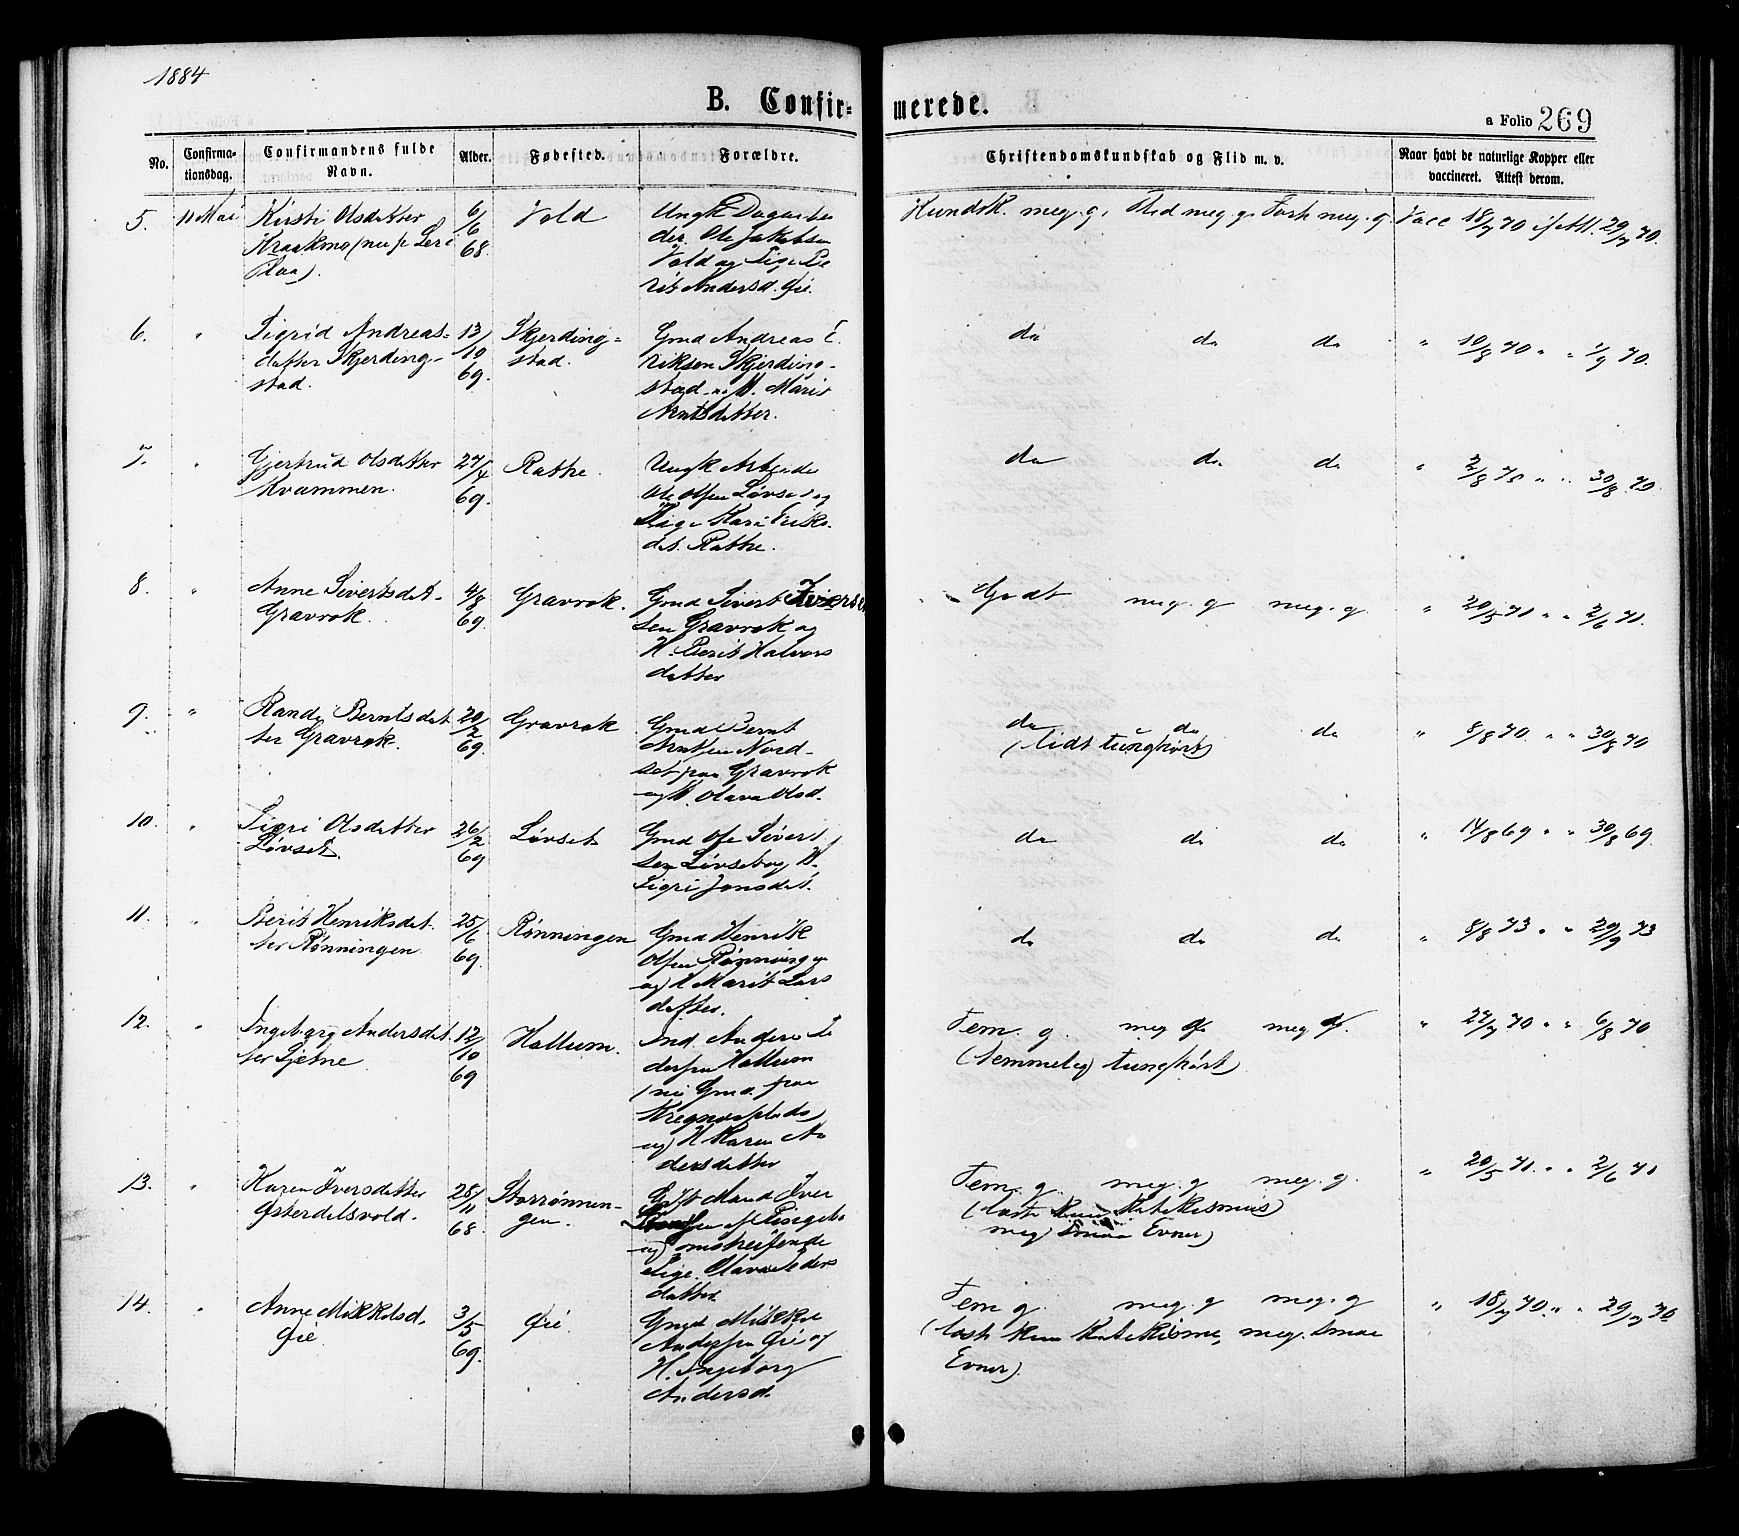 1884
B. Confir=
merede.
a Folio 269
No.
Confirma-
tionsdag.
Confirmandens fulde
Navn.
Alder.
Fødested.
Forældre.
Christendomskundskab og Flid m. v.
Naar havt de naturlige Kopper eller
vaccineret. Attest derom.
5. 11 Mai Kirsti Olsdatter 6/6 68. Vold
Ungk.
der. Ole Jakobsen
Vold og Pige Be
rit Andersd. Øie.
Kundsk. meg. g. Flid meg. g. Forh meg. g. Vacc 18/7 70 if Att. 29/7 70.
6. " Sigrid Andreas-
datter Skjerding-
stad.
13/10 69.
Skjerding=
stad.
Gmd Andreas E
riksen Skjerding-
stad og H. Marit
Arntsdatter.
do do do " 10/8 70 " " 1/9 70.
7. " Gjertrud Olsdatter
Kvammen.
27/4 69.
Rathe.
Ungk Arbeider
Ole Olsen Løvset og
Pige Kari Eriks-
dat. Rathe.
do do do " 2/8 70 " " 30/8 70.
8. " Anne Sivertsdat.
Gravrok.
4/8 69.
Gravrok.
Gmd Sivert Iversen
sen Gravrok og
H. Berit Halvors
datter
Godt meg. g meg. g. " 20/5 70 " " 2/6 70.
9. " Randi Berntsdat
ter Gravrok.
20/2 69.
Gravrok
Gmd Bernt
Arntsen Nord-
set paa Gravrok
og H. Olava Olsd.
do do do " 8/8 70. " " 30/8 70
(lidt tunghørt)
10. " Sigri Olsdatter
Løvset.
26/2 69
Løvset
Gmd Ole Sivert
sen Løvset og H.
Sigri Jonsdat.
do do do " 14/8 69 " " 30/8 69.
11. " Berit Henriksdat.
ter Rønningen
25/6 69.
Rønningen
Gmd Henrik
Olsen Rønningen
og H Marit Lars
datter.
do do do " 8/8 73 " " 29/9 73
12. " Ingeborg Andersdat.
ter Sjetne
12/10 69
Hollum.
Ind. Anders Pe
dersen Hollum
(nu Gmd. paa
og H Karen An
dersdatter
Tem. g. meg g. meg g. " 27/7 70 " " 6/8 70.
(temmelig tunghørt)
13. " Karen Iversdatter
Østerdelsvold.
28/11 68.
Storrønnin-
gen.
Gift Mand Iver
og omstreifende
Pige Olava Peders
datter
Tem. g. meg. g meg. g. " 20/5 70. " " 2/6 70
(læst kun Katekismus)
meg) smaa Evner)
14. " Anne Mikkelsd.
Øie
3/5 69.
Øie.
Gmd Mikkel
Andersen Øie og
H. Ingeborg
Andersd.
Tem g. meg. g meg. g " 18/7 70. " " 29/7 70
(læst kun Katekisme, meg. smaa
Evner).